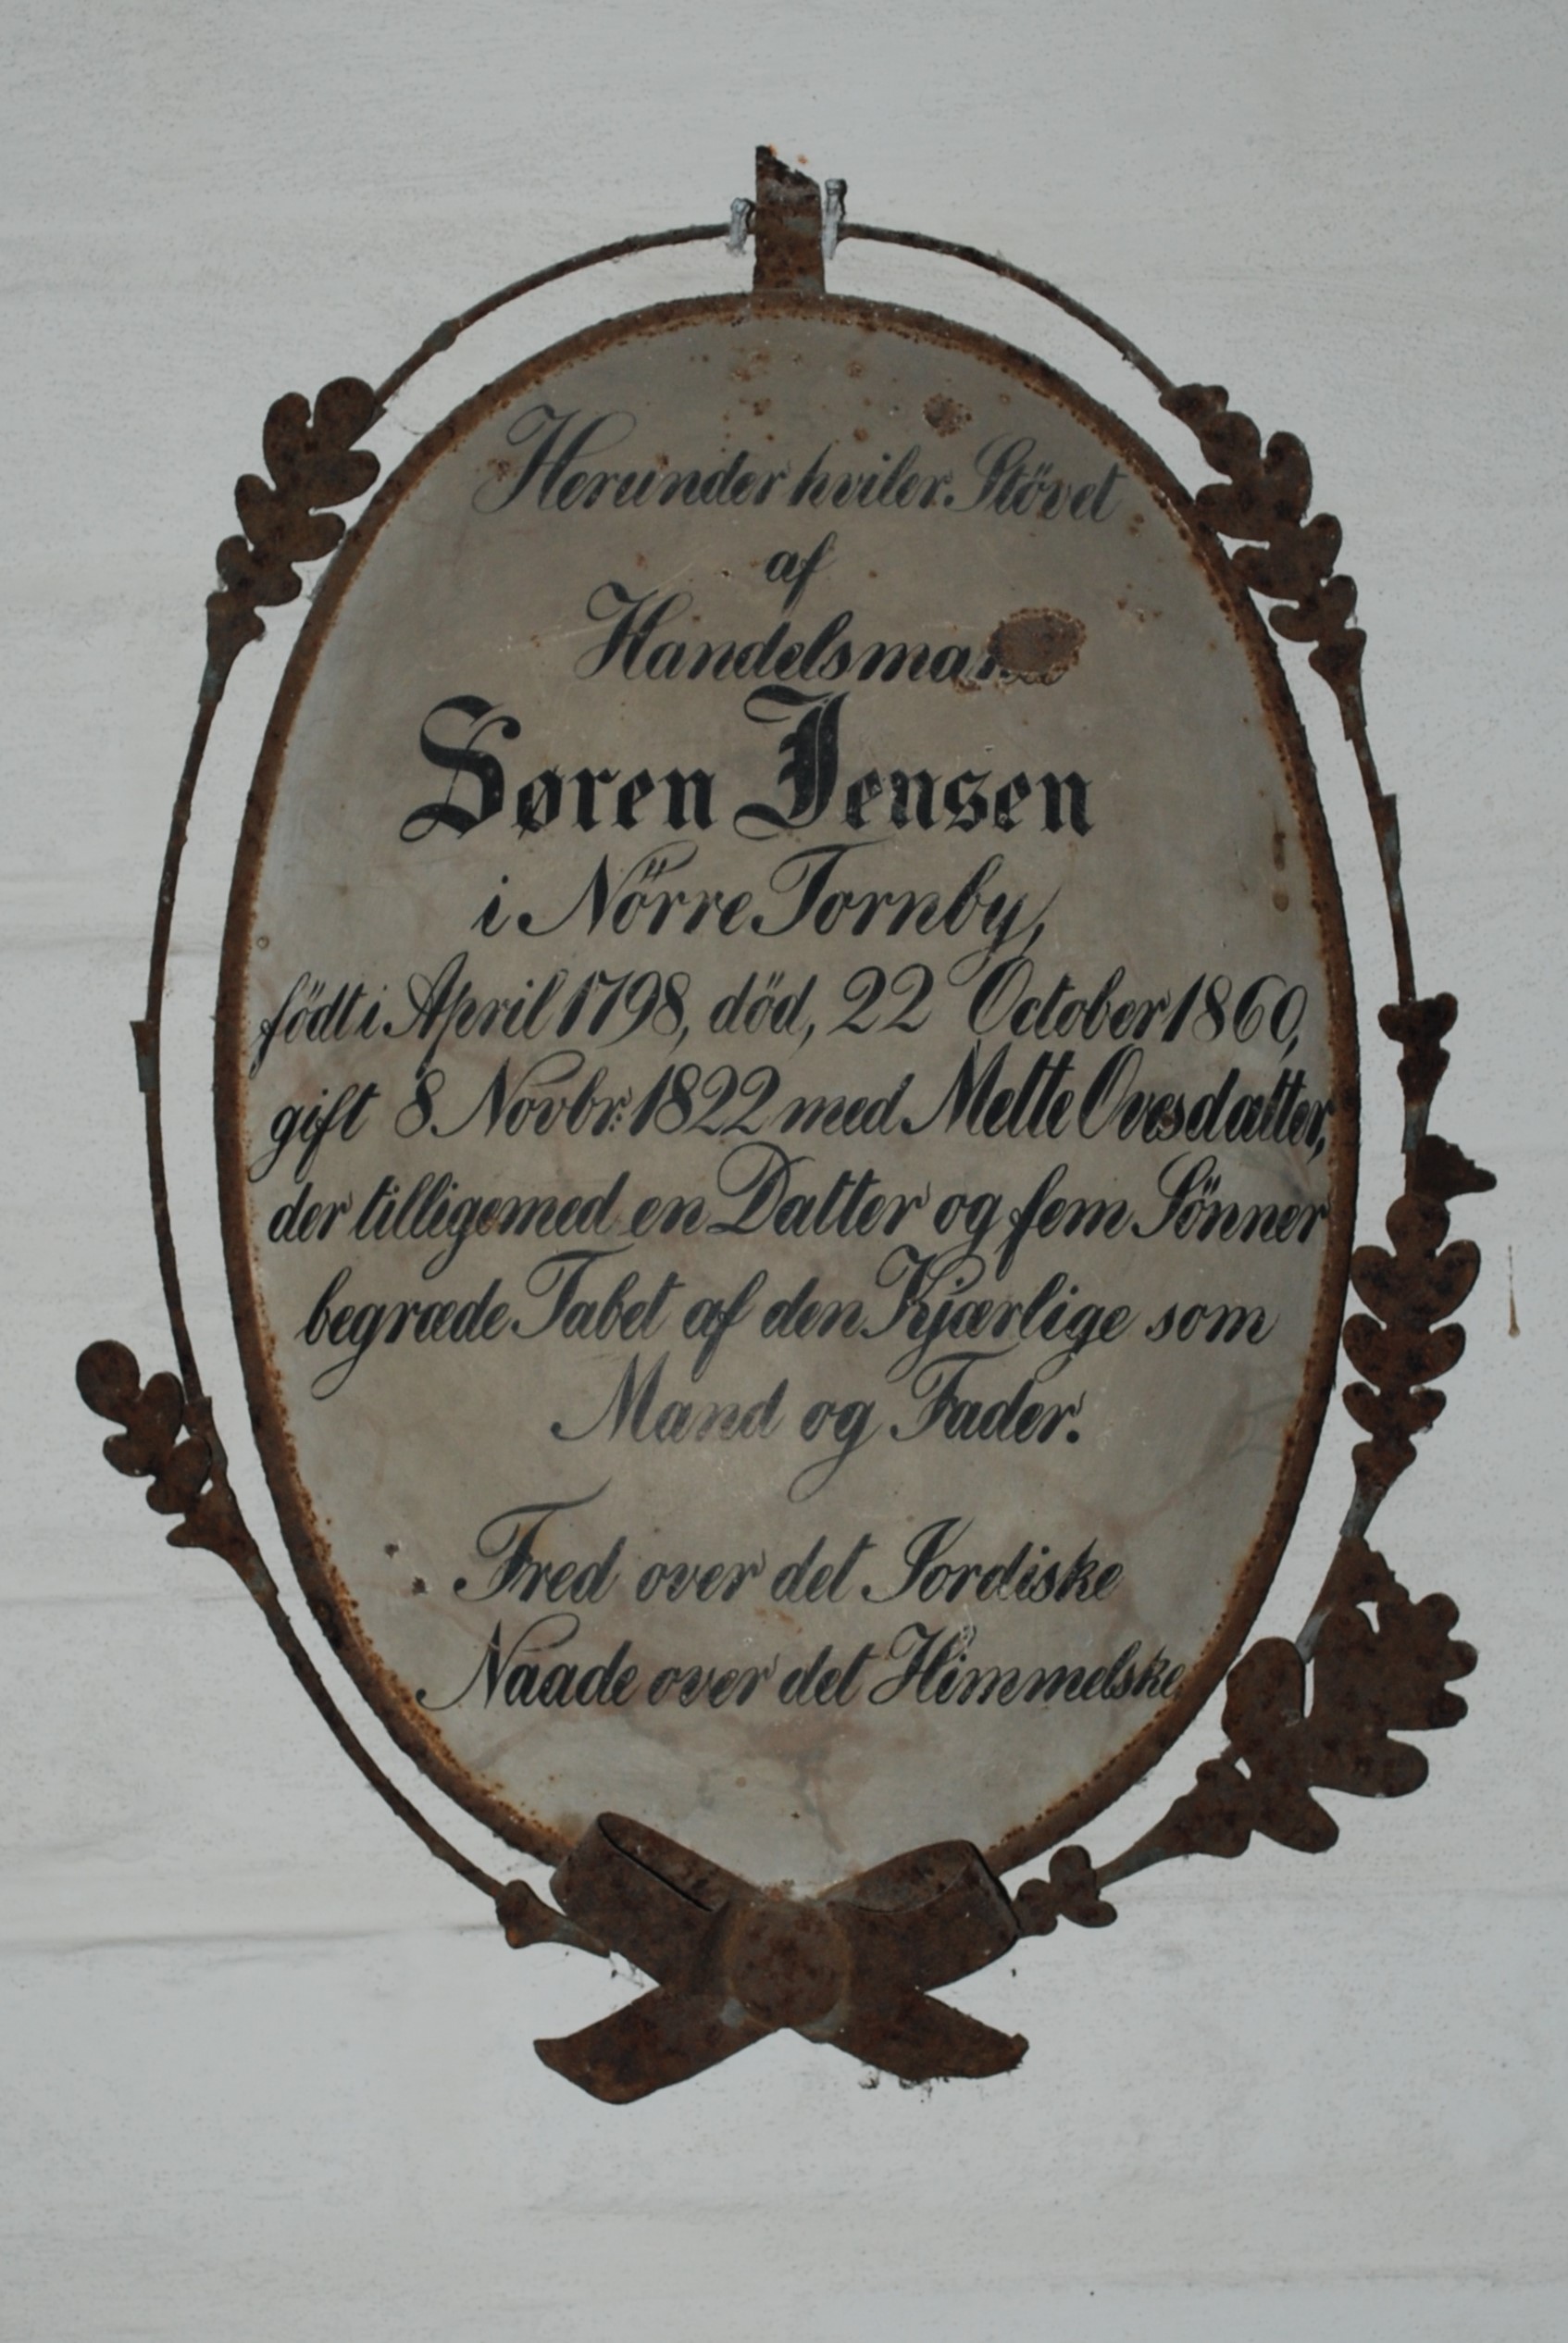 Herunder hviler Stövet
af
Handelsmand
Søren Jensen
i Nörre Tornby,
födt i April 1798, död, 22 October 1860,
gift 8. Novbr. 1822 med Mette Ovesdatter,
der tilligemed en Datter og fem Sönner
begræde Tabet af den Kjærlige som
Mand og Fader.
Fred over det Jordiske
Naade over det Himmelske.